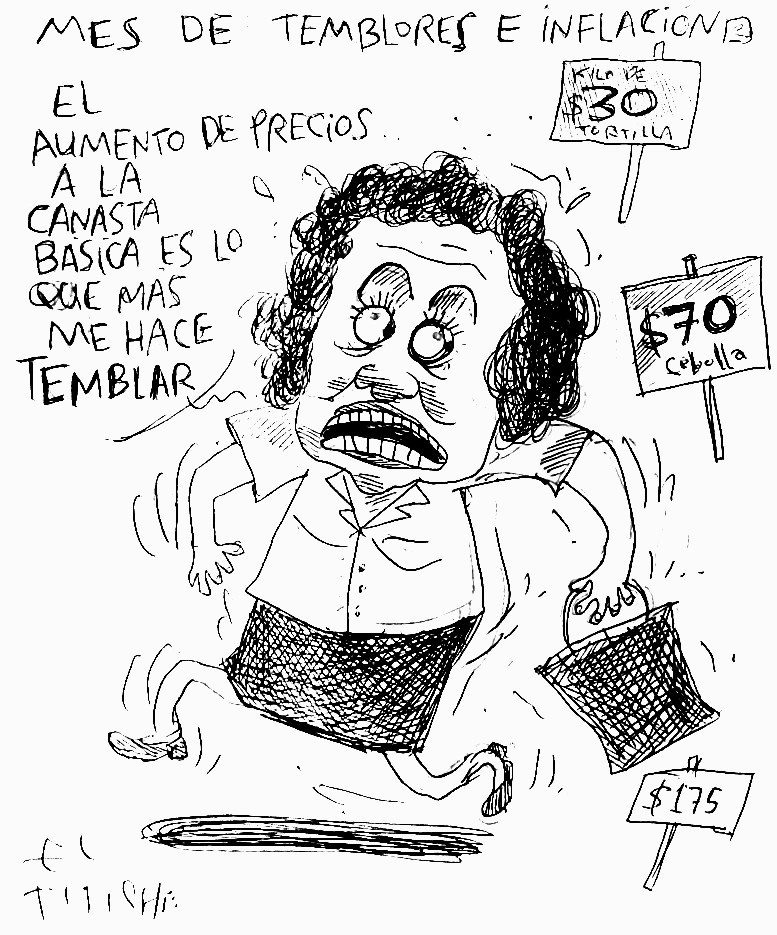 MES DE TEMBLORES E INFLACION
EL
AUMENTO DE PRECIOS
A LA
CANASTA
BASICA ES LO
QUE MAS
ME HACE
TEMBLAR
KILO DE
$30
TORTILLA
$70
Cebolla
$175